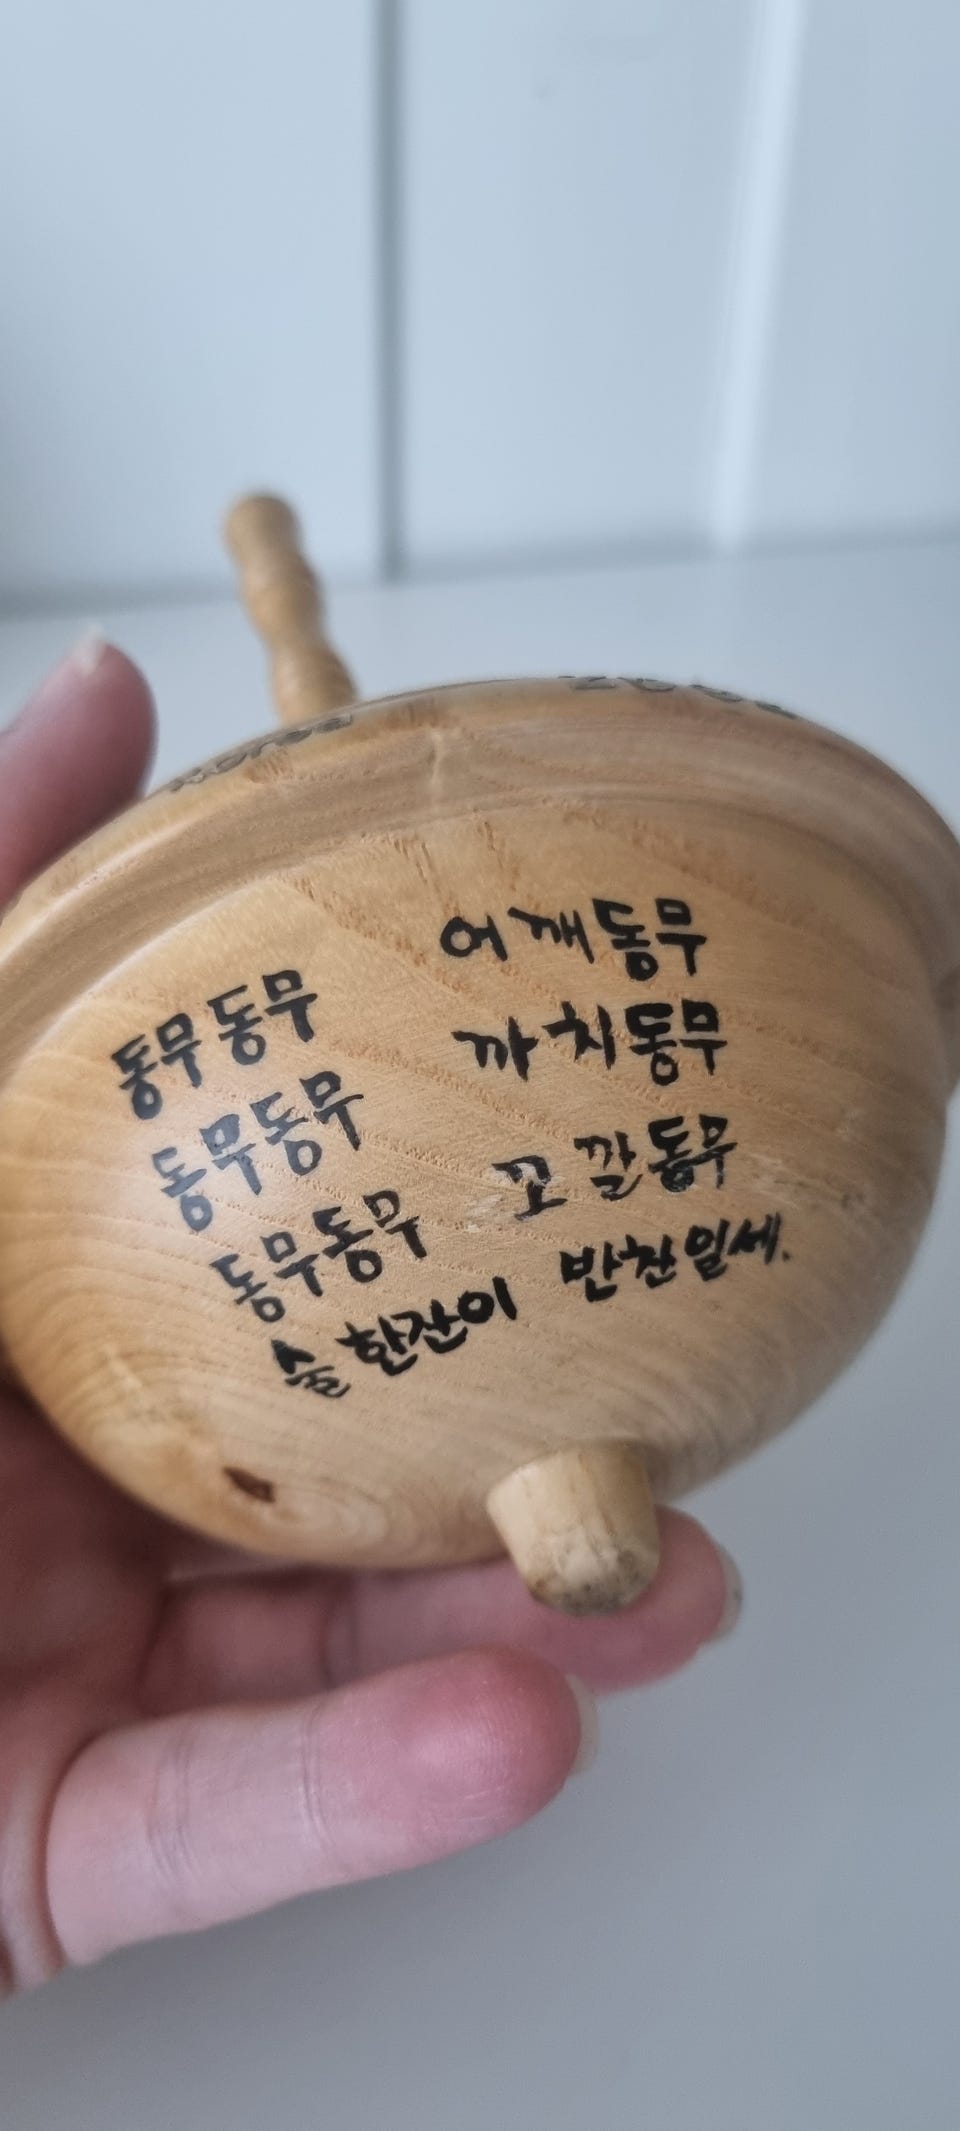 Korea
동무동무 어깨동무
동무동무 까치동무
동무동무 꼬깔동무
술 한잔이 반찬일세.